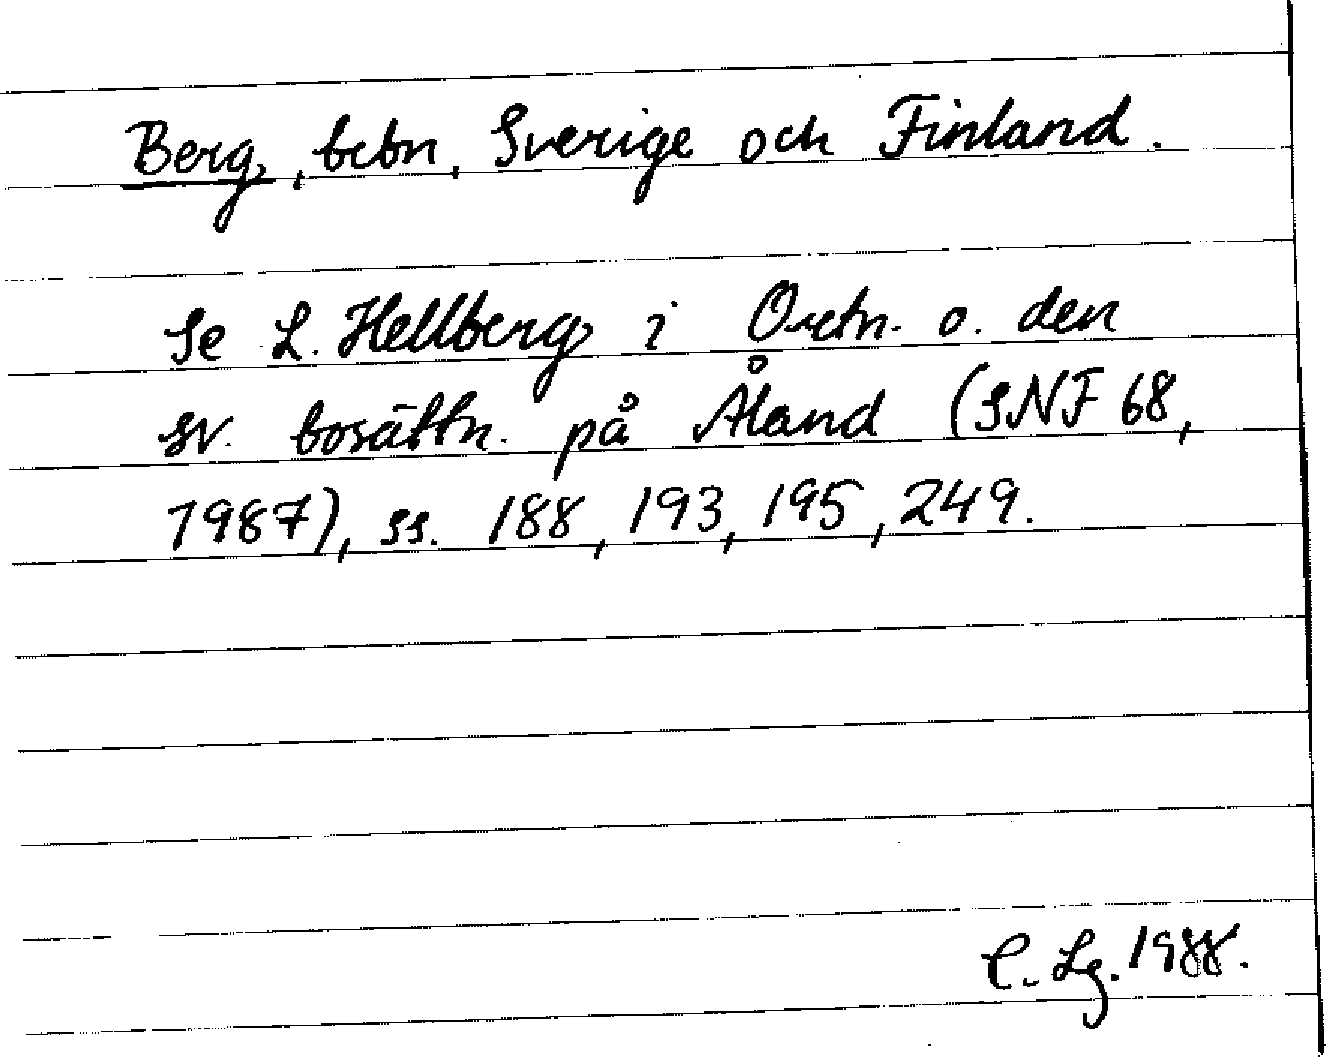 Berg, bebn, Sverige och Finland.
Se L. Hellberg i Ortn. o. den
sv. bosättn. på Åland (SNF 68,
1987), ss. 188, 193, 195, 249.
C. Lg. 1988.